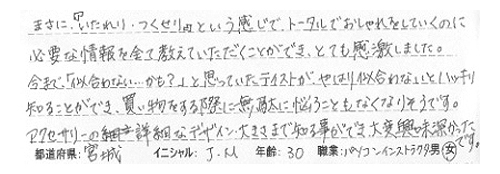 まさに、"いたれり・つくせり"という感じで、トータルでおしゃれをしていくのに
必要な情報を全て教えていただくことができ、とても感激しました。
今まで、「似合わない…かも?」と思っていたテイストが、やはり似合わない!とハッキリ
知ることができ、買い物をする際に無駄に悩むこともなくなりそうです。
アクセサリーの細 詳細なデザイン・大きさまで知る事ができ大変興味深かった
です。
都道府県：宮城 イニシャル：J.M 年齢：30 職業：パソコンインストラクタ 男 女